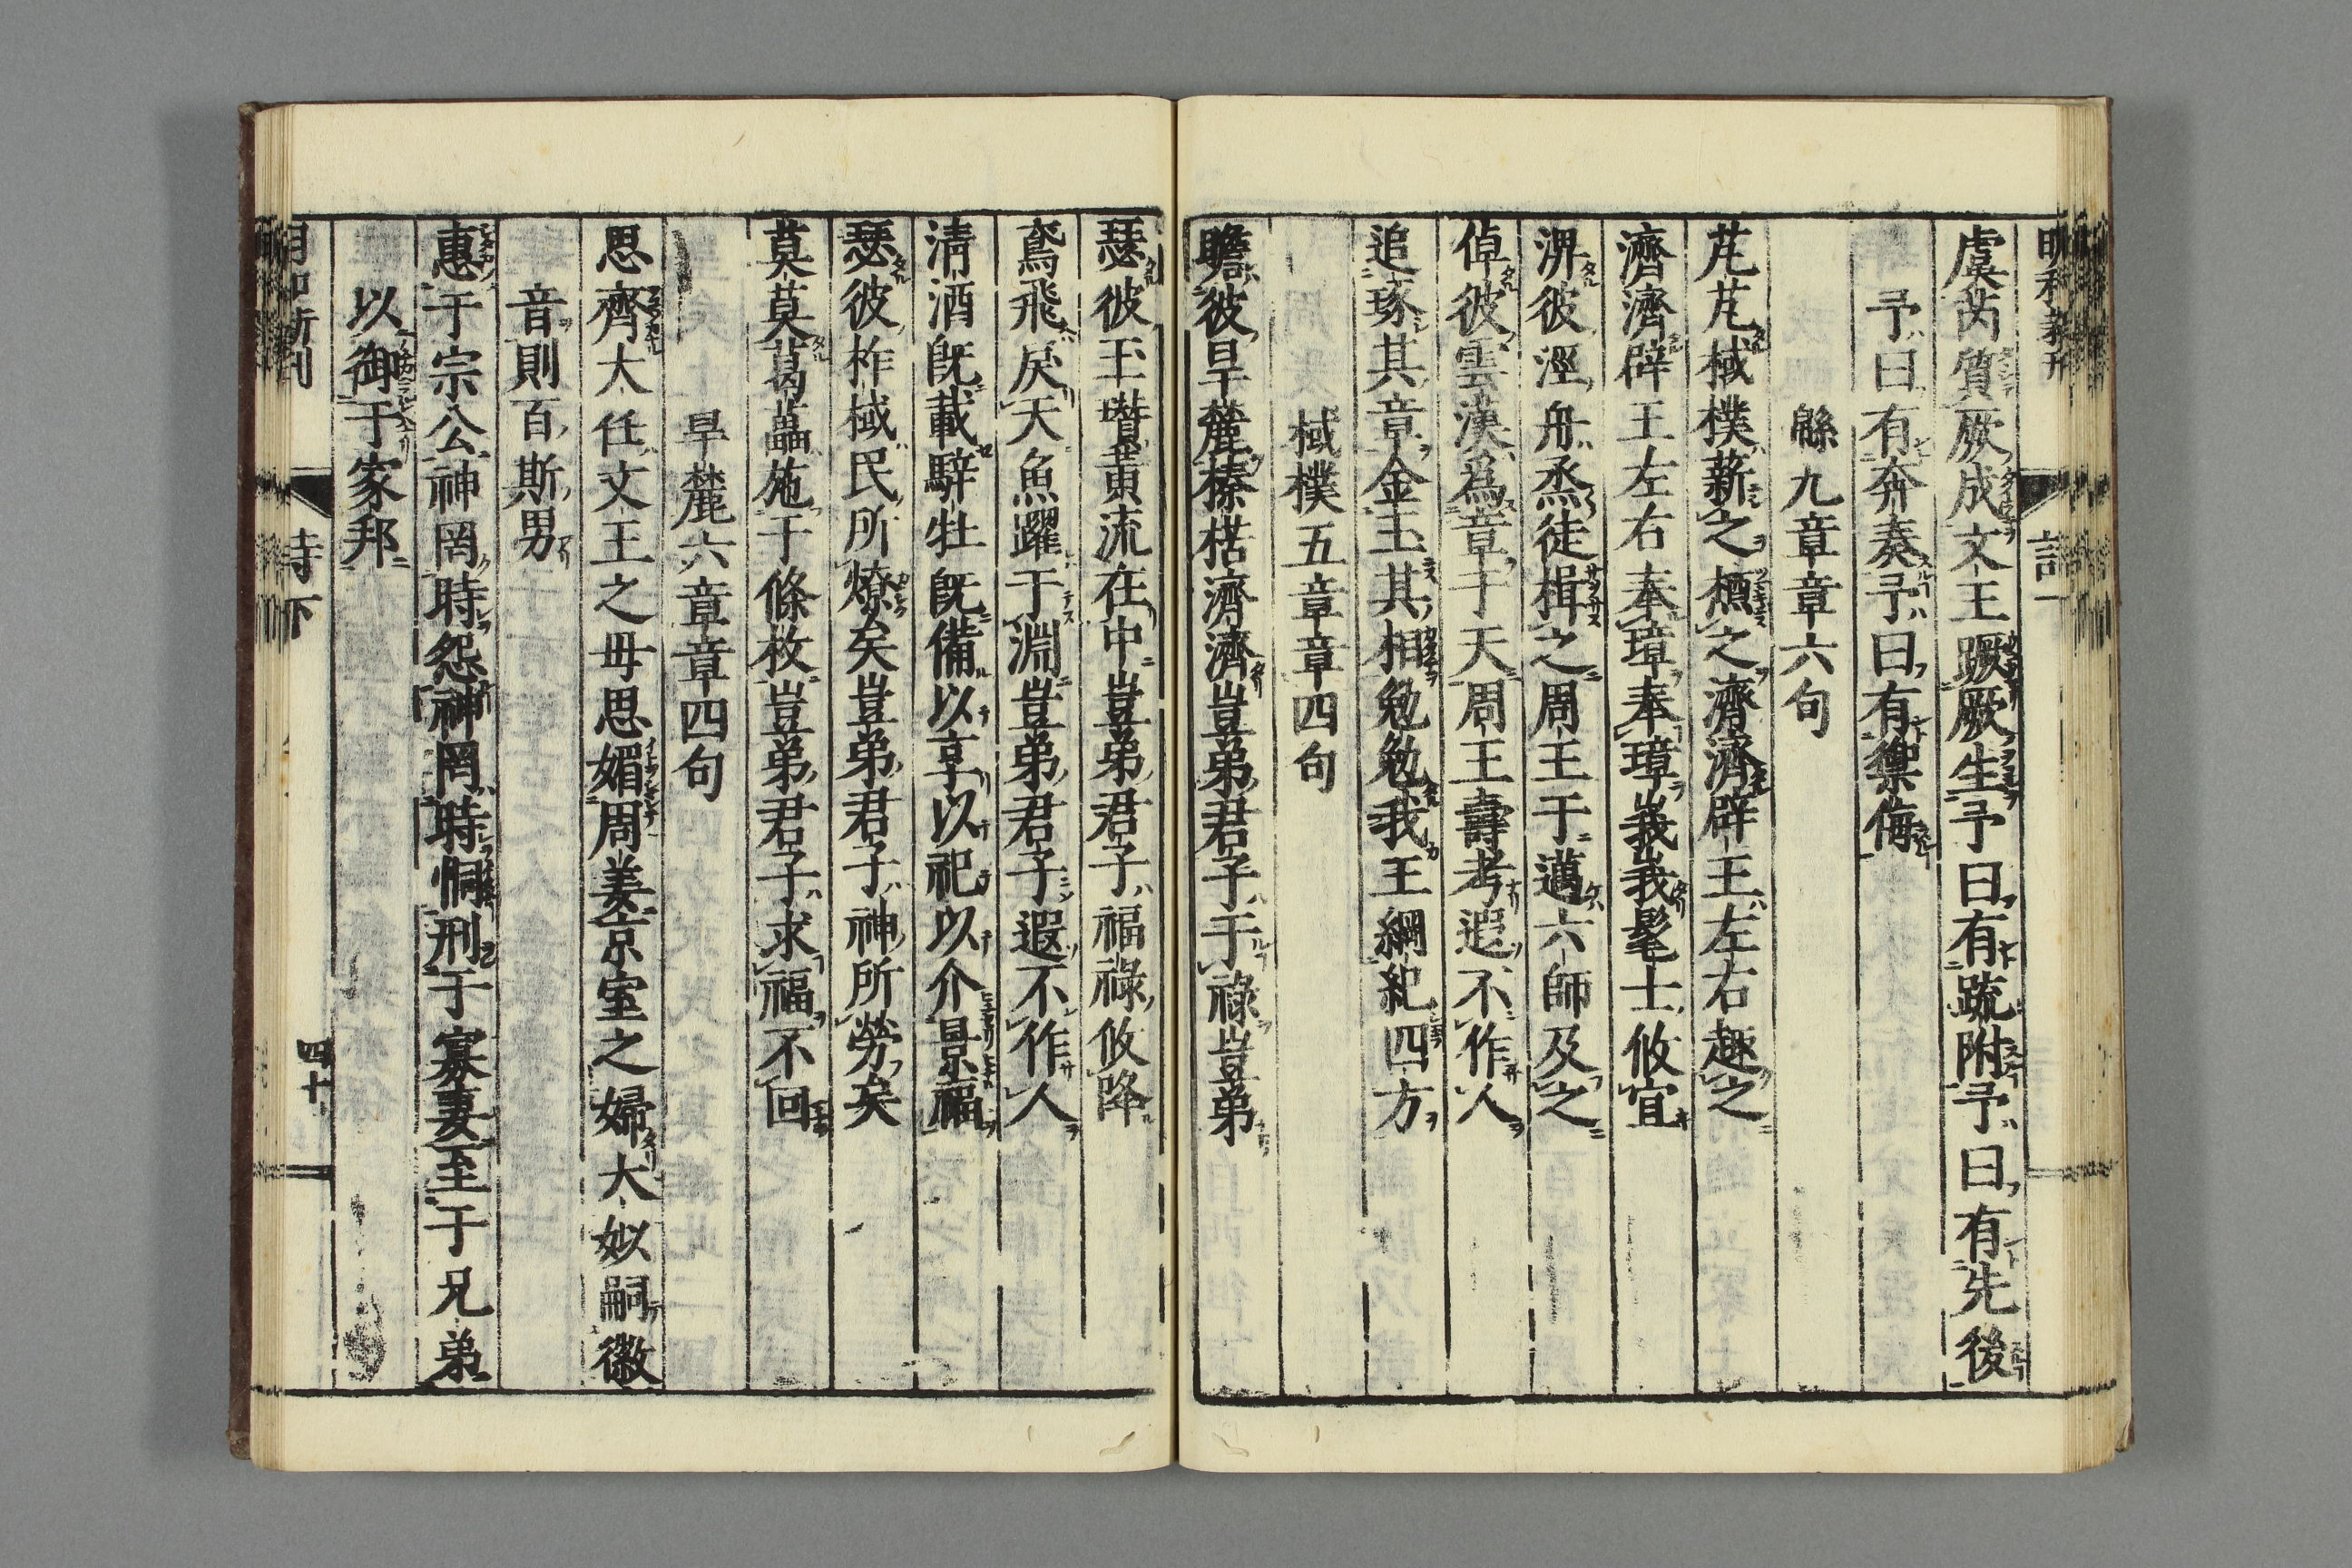 虞芮質厥成文王蹶厥生予曰有疏附予曰有先後
予曰有奔奏予曰有禦侮
緜九章章六句
芃芃棫樸薪之槱之濟濟辟王左右趣之
濟濟辟王左右奉璋奉璋峩峩髦士攸宜
淠彼涇舟烝徒楫之周王于邁六師及之
倬彼雲漢爲章于天周王壽考遐不作人
追琢其章金玉其相勉勉我王綱紀四方
棫樸五章章四句
瞻彼旱麓榛楛濟濟豈弟君子于祿豈弟
瑟彼玉瓚黄流在中豈弟君子福祿攸降
鳶飛戾天魚躍于淵豈弟君子遐不作人
清酒旣載騂牡旣備以享以祀以介景福
瑟彼柞棫民所燎矣豈弟君子神所勞矣
莫莫葛藟施于條枚豈弟君子求福不回
旱麓六章章四句
思齊大任文王之毋思媚周姜京室之婦大姒嗣徽
音則百斯男
惠于宗公神罔時怨神罔時恫刑于寡妻至于兄弟
以御于家邦
詩下
四十